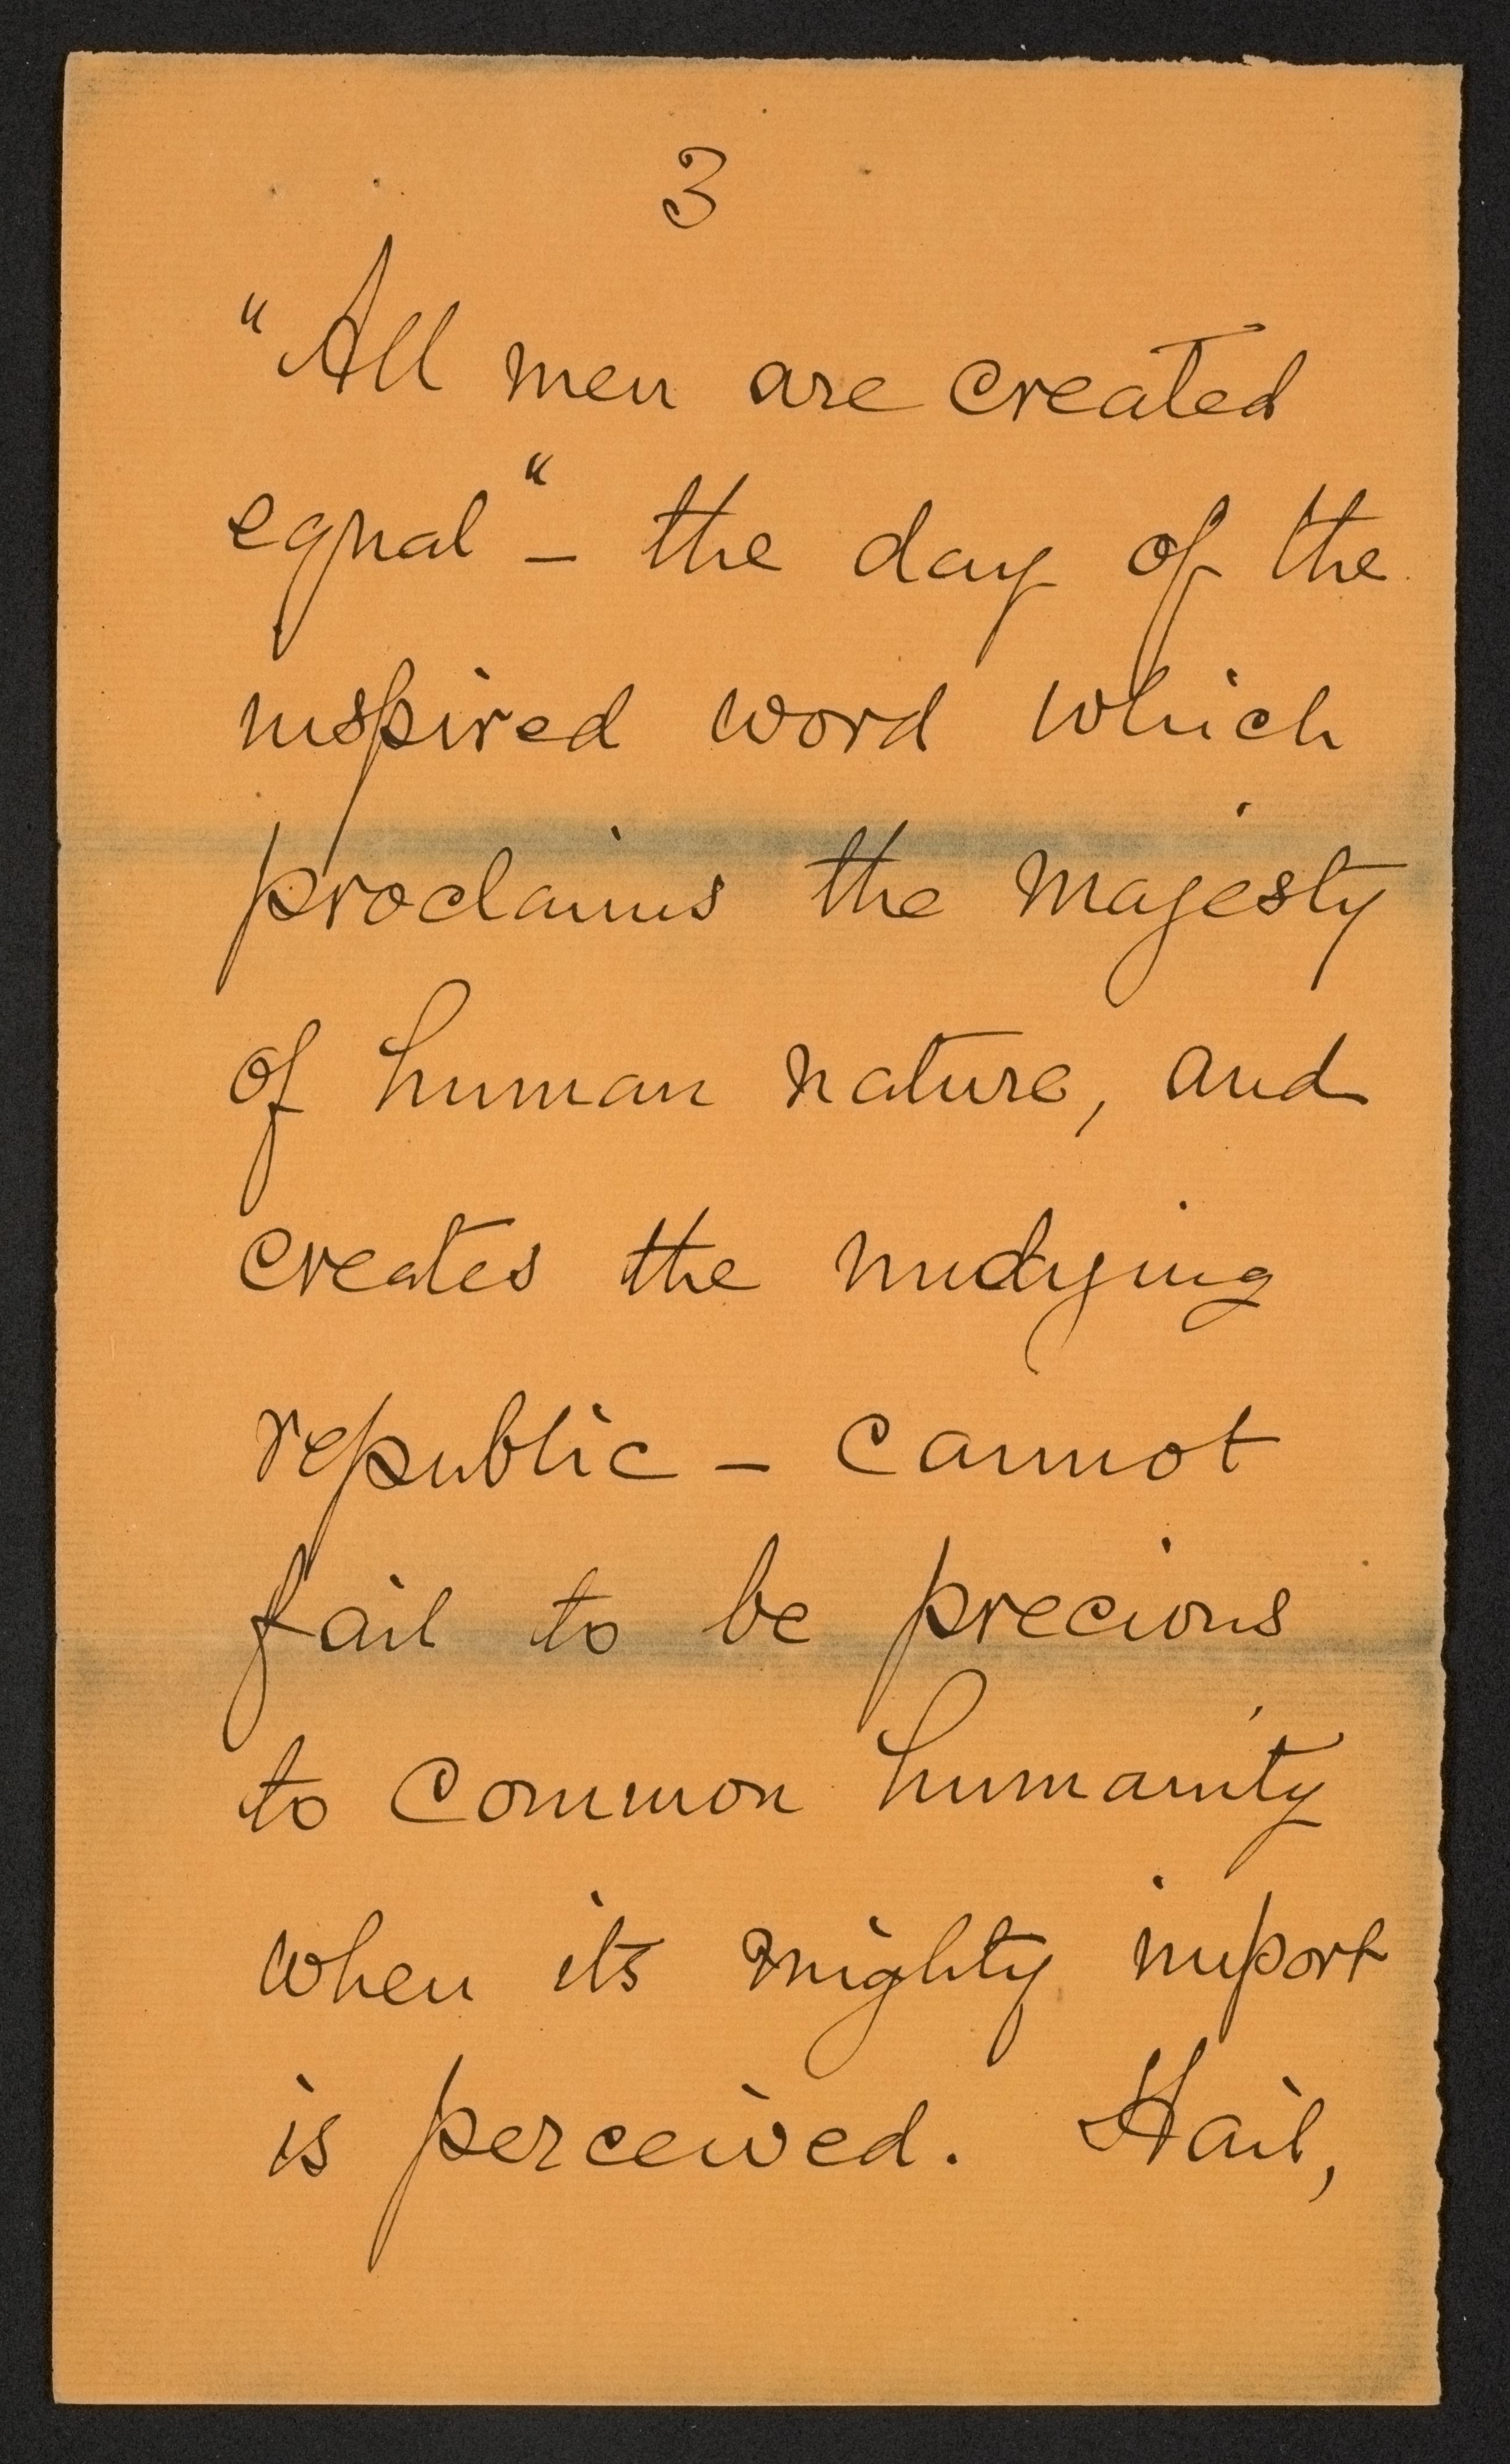 3
"All men are created
equal" - the day of the
inspired word which
proclaims the majesty
of human nature, and
creates the undying
republic - cannot
fail to be precious
to common humanity
when its mighty import
is perceived. Hail,